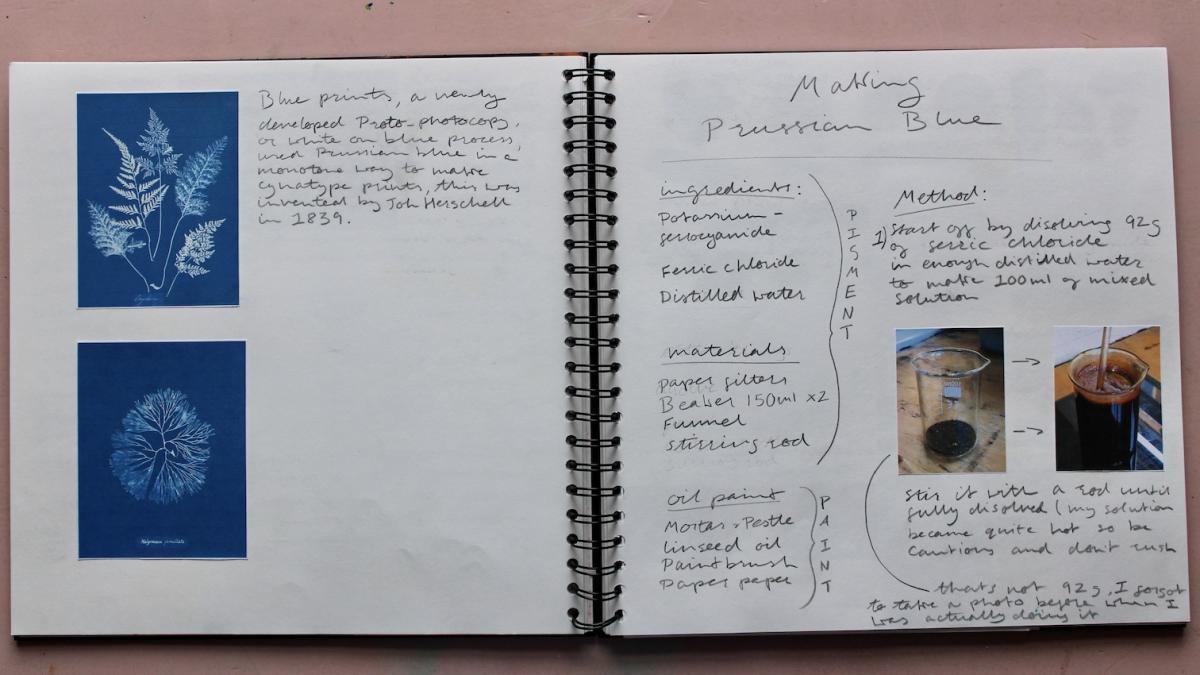 Blue prints, a newly
developed Proto-photocopy,
or white on blue process,
used Prussian blue in a
monotone way to make
cynatype prints, this was
invented by Joh Herschell
in 1839.
Making
Prussian Blue
ingredients:
Potassium-
ferrocyanide
Ferric chloride
Distilled water
materials
paper filters
Beaker 150ml x2
Funnel
stirring rod
PIGMENT
oil paint
Mortar + Pestle
linseed oil
Paintbrush
Paper paper
PAINT
Method:
1) Start off by disolving 92g
of ferric chloride
in enough distilled water
to make 100ml of mixed
solution
Stir it with a rod until
fully disolved (my solution
became quite hot so be
cautions and don't rush
thats not 92g, I forgot
to take a photo before when I
was actually doing it